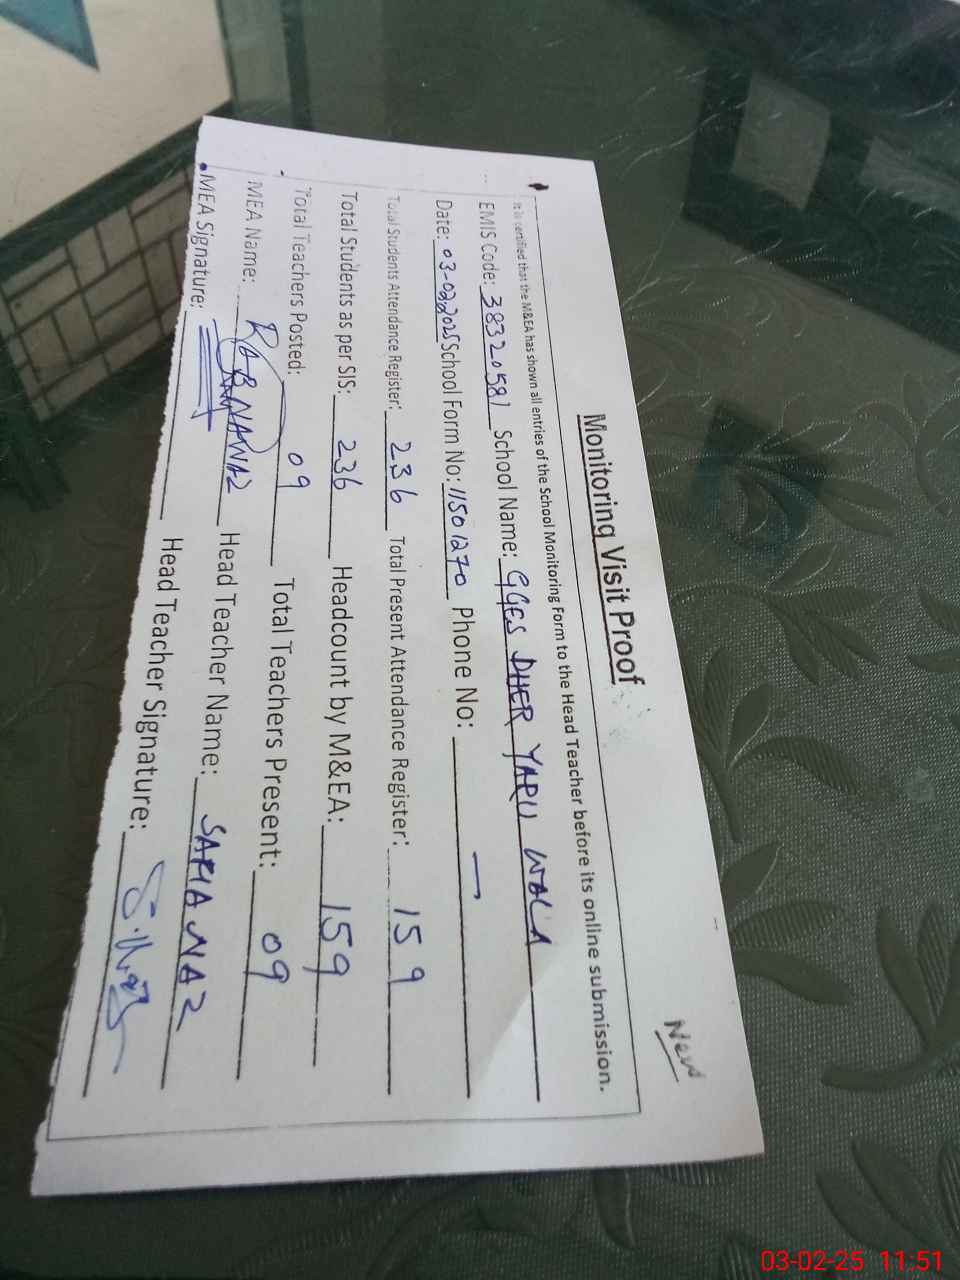 New
Monitoring Visit Proof
It is certified that the M&EA has shown all entries of the School Monitoring Form to the Head Teacher before its online submission.
EMIS Code: 38320581 School Name: GGES DHER YARU WALA
Date: 03-02-2025 School Form No: 11501270 Phone No: —
Total Students Attendance Register: 236 Total Present Attendance Register: 159
Total Students as per SIS: 236 Headcount by M&EA: 159
Total Teachers Posted: 09 Total Teachers Present: 09
MEA Name: RAB NAWAZ Head Teacher Name: SAFIA NAZ
MEA Signature: Head Teacher Signature:
03-02-25 11:51